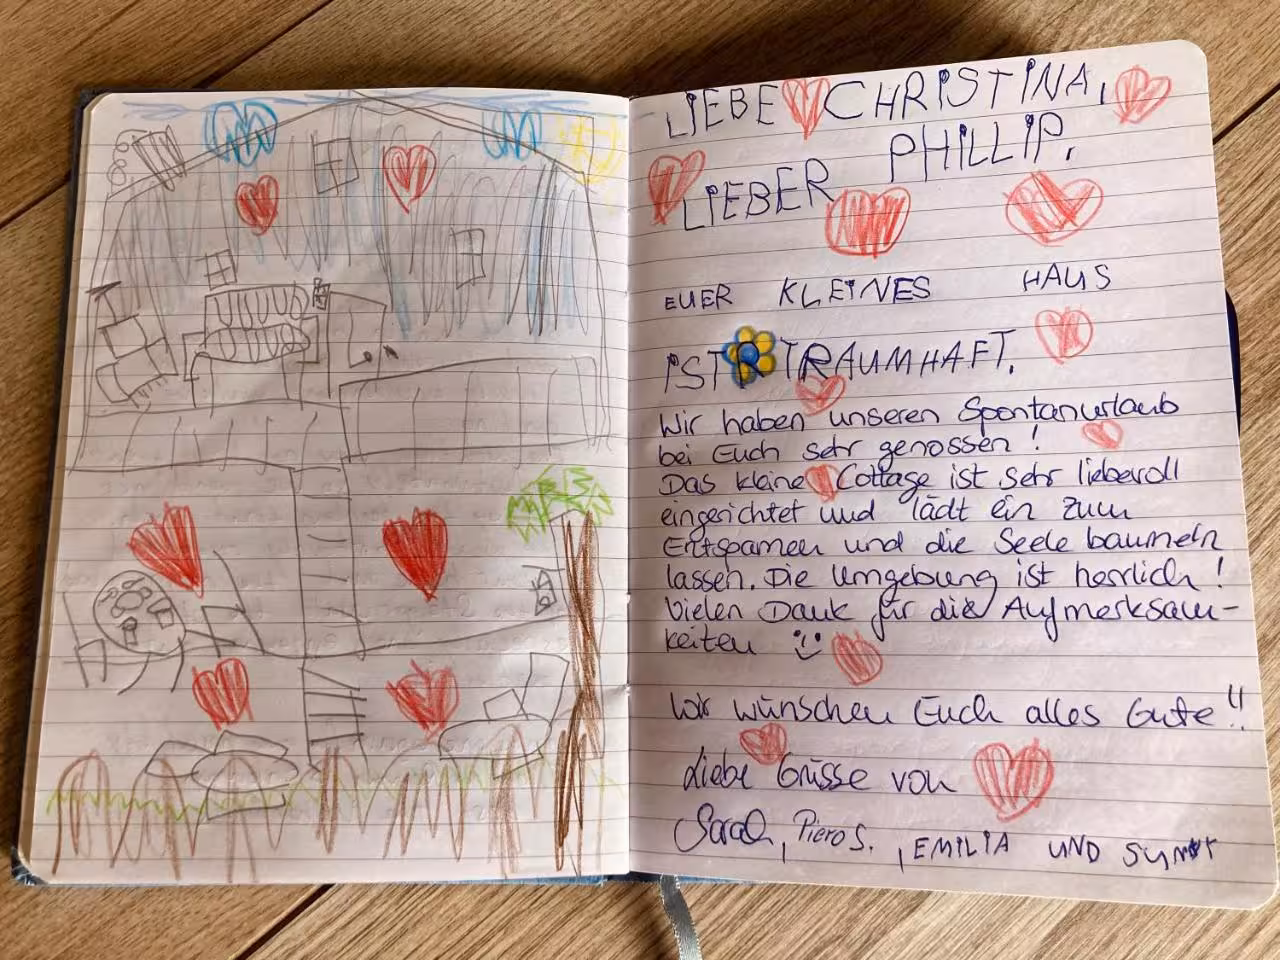 LIEBE CHRISTINA,
LIEBER PHILLIP.
EUER KLEINES HAUS
IST TRAUMHAFT.
Wir haben unseren Spontanurlaub
bei Euch sehr genossen!
Das kleine Cottage ist sehr liebevoll
eingerichtet und lädt ein zum
Entspannen und die Seele baumeln
lassen. Die Umgebung ist herrlich!
Vielen Dank für die Aufmerksam-
keiten
Wir wünschen Euch alles Gute!!
Liebe Grüsse von
Sarah, Piero S., EMILIA UND